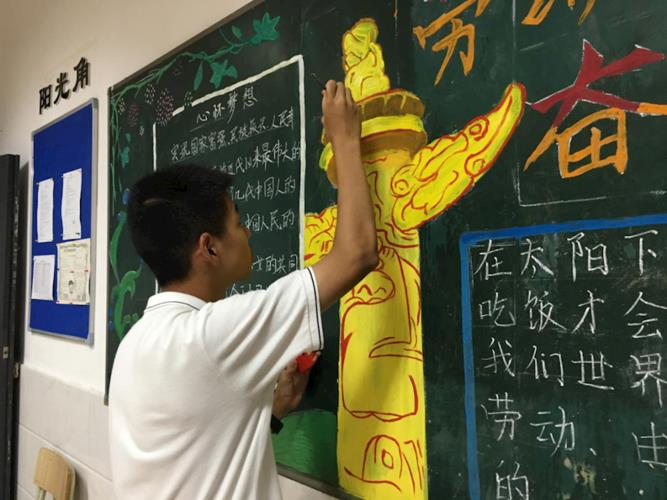 阳光角
心怀梦想
实现国家富强、民族振兴、人民幸
近代以来最伟大的
代中国人的
中国人民的
的共同
劳
奋
在太阳下
吃饭才会
我们世界
劳动、由
的